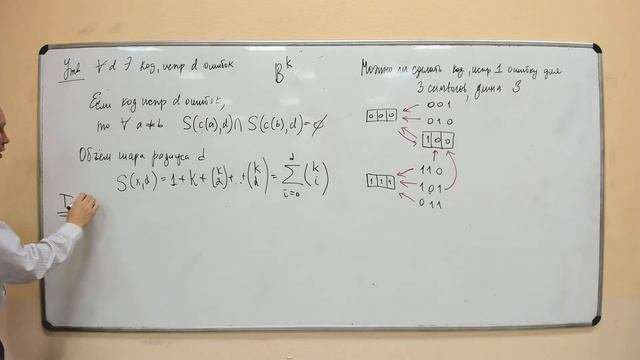 Утв ∀ d ∃ код, испр d ошибок
B^k
Если код испр d ошибок,
то ∀ a≠b S(c(a),d)∩S(c(b),d)=∅
Объём шара радиуса d
S(x,d)=1+k+(k 2)+..+(k d)=∑_{i=0}^{d}(k i)
Можно ли сделать код, испр 1 ошибку для
3 символов, длина 3
000
001
010
100
111
110
101
011